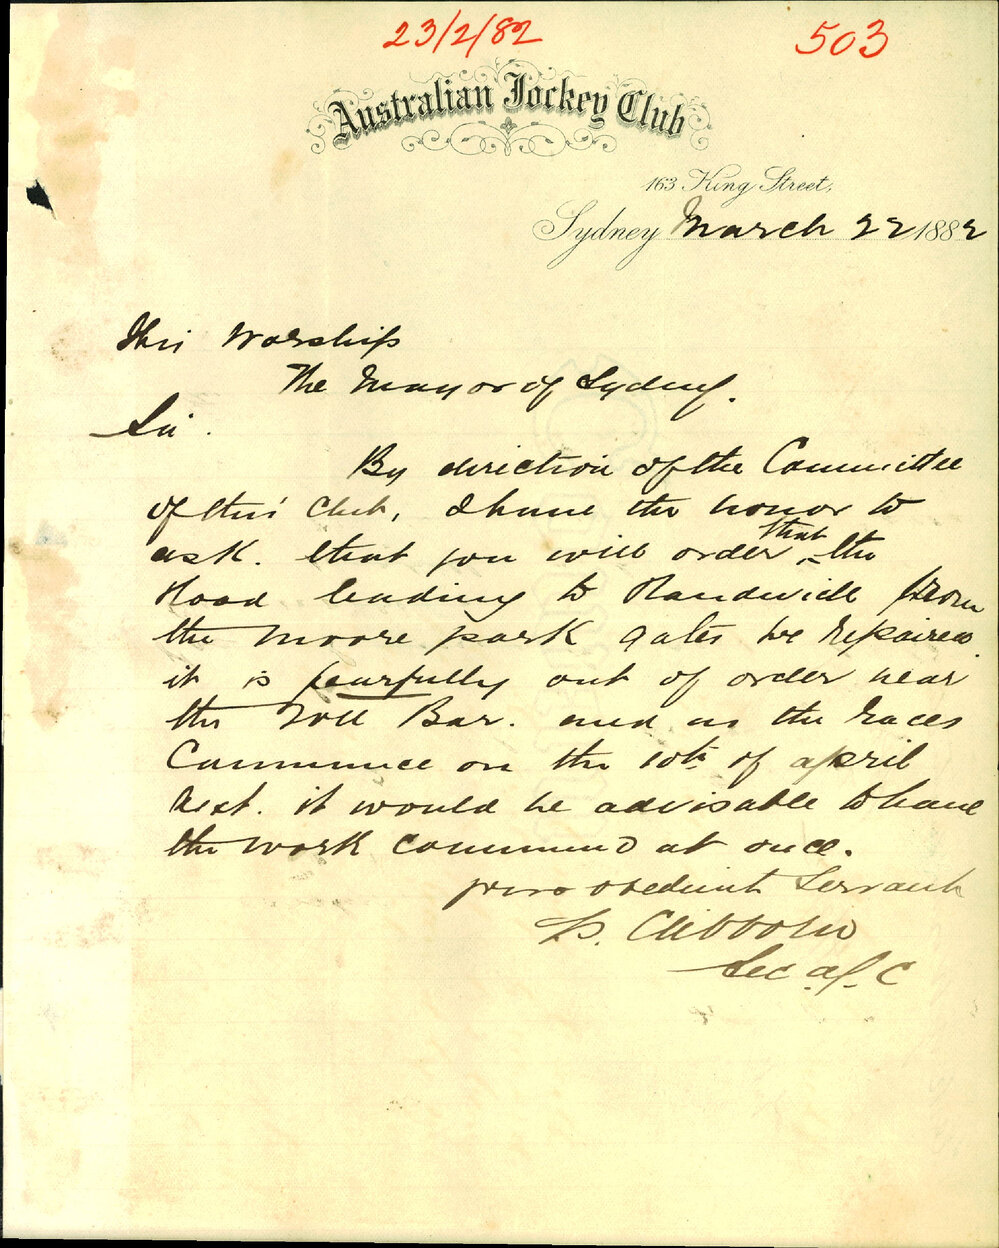 23/2/82
503
Australian Jockey Club
163 King Street,
Sydney March 22 1882
His Worship
The Mayor of Sydney.
Sir.
By direction of the Committee
of this Club, I have the honor to
ask. that you will order that the
Road leading to Randwick from
the Moore park gates be repaired.
it is fearfully out of order near
the Toll Bar. and as the races
Commence on the 10th of april
next. it would be advisable to have
the work Commenced at once.
your obedient Servant
Clibborn
Sec A.J.C